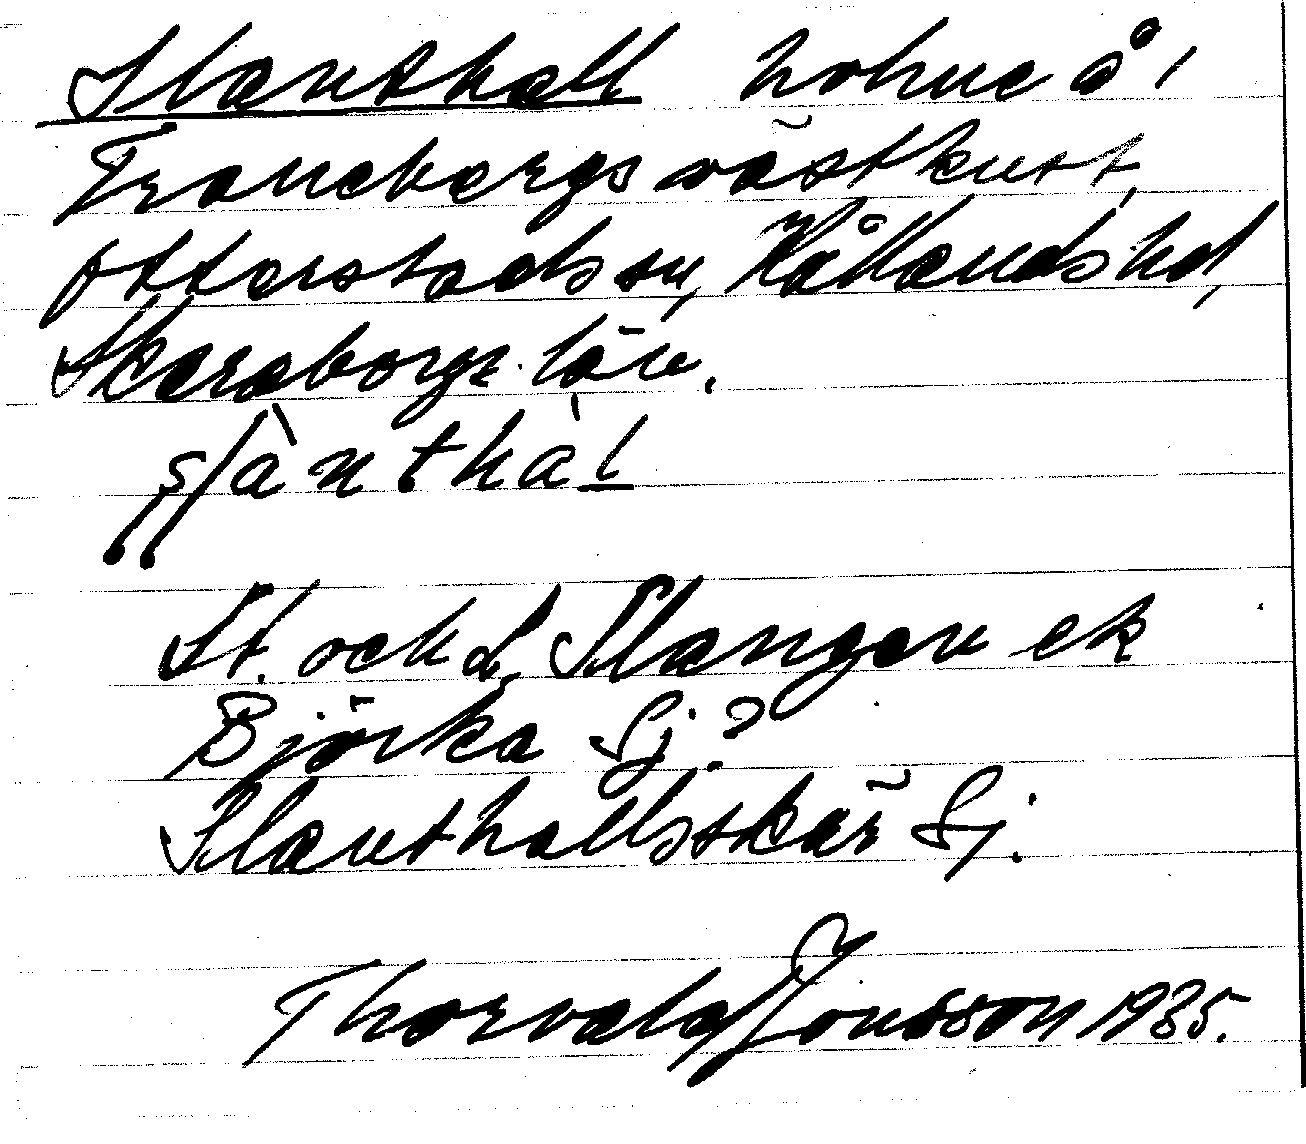 Slanthall holme å 1
Tranebergs västkust,
Otterstads sn, Kållands hd,
Skaraborgs län.
slànthàl
St. och L. Slangen ek
Björka Sj.?
Slanthallsskär Sj.
Thorvald Jonsson 1935.